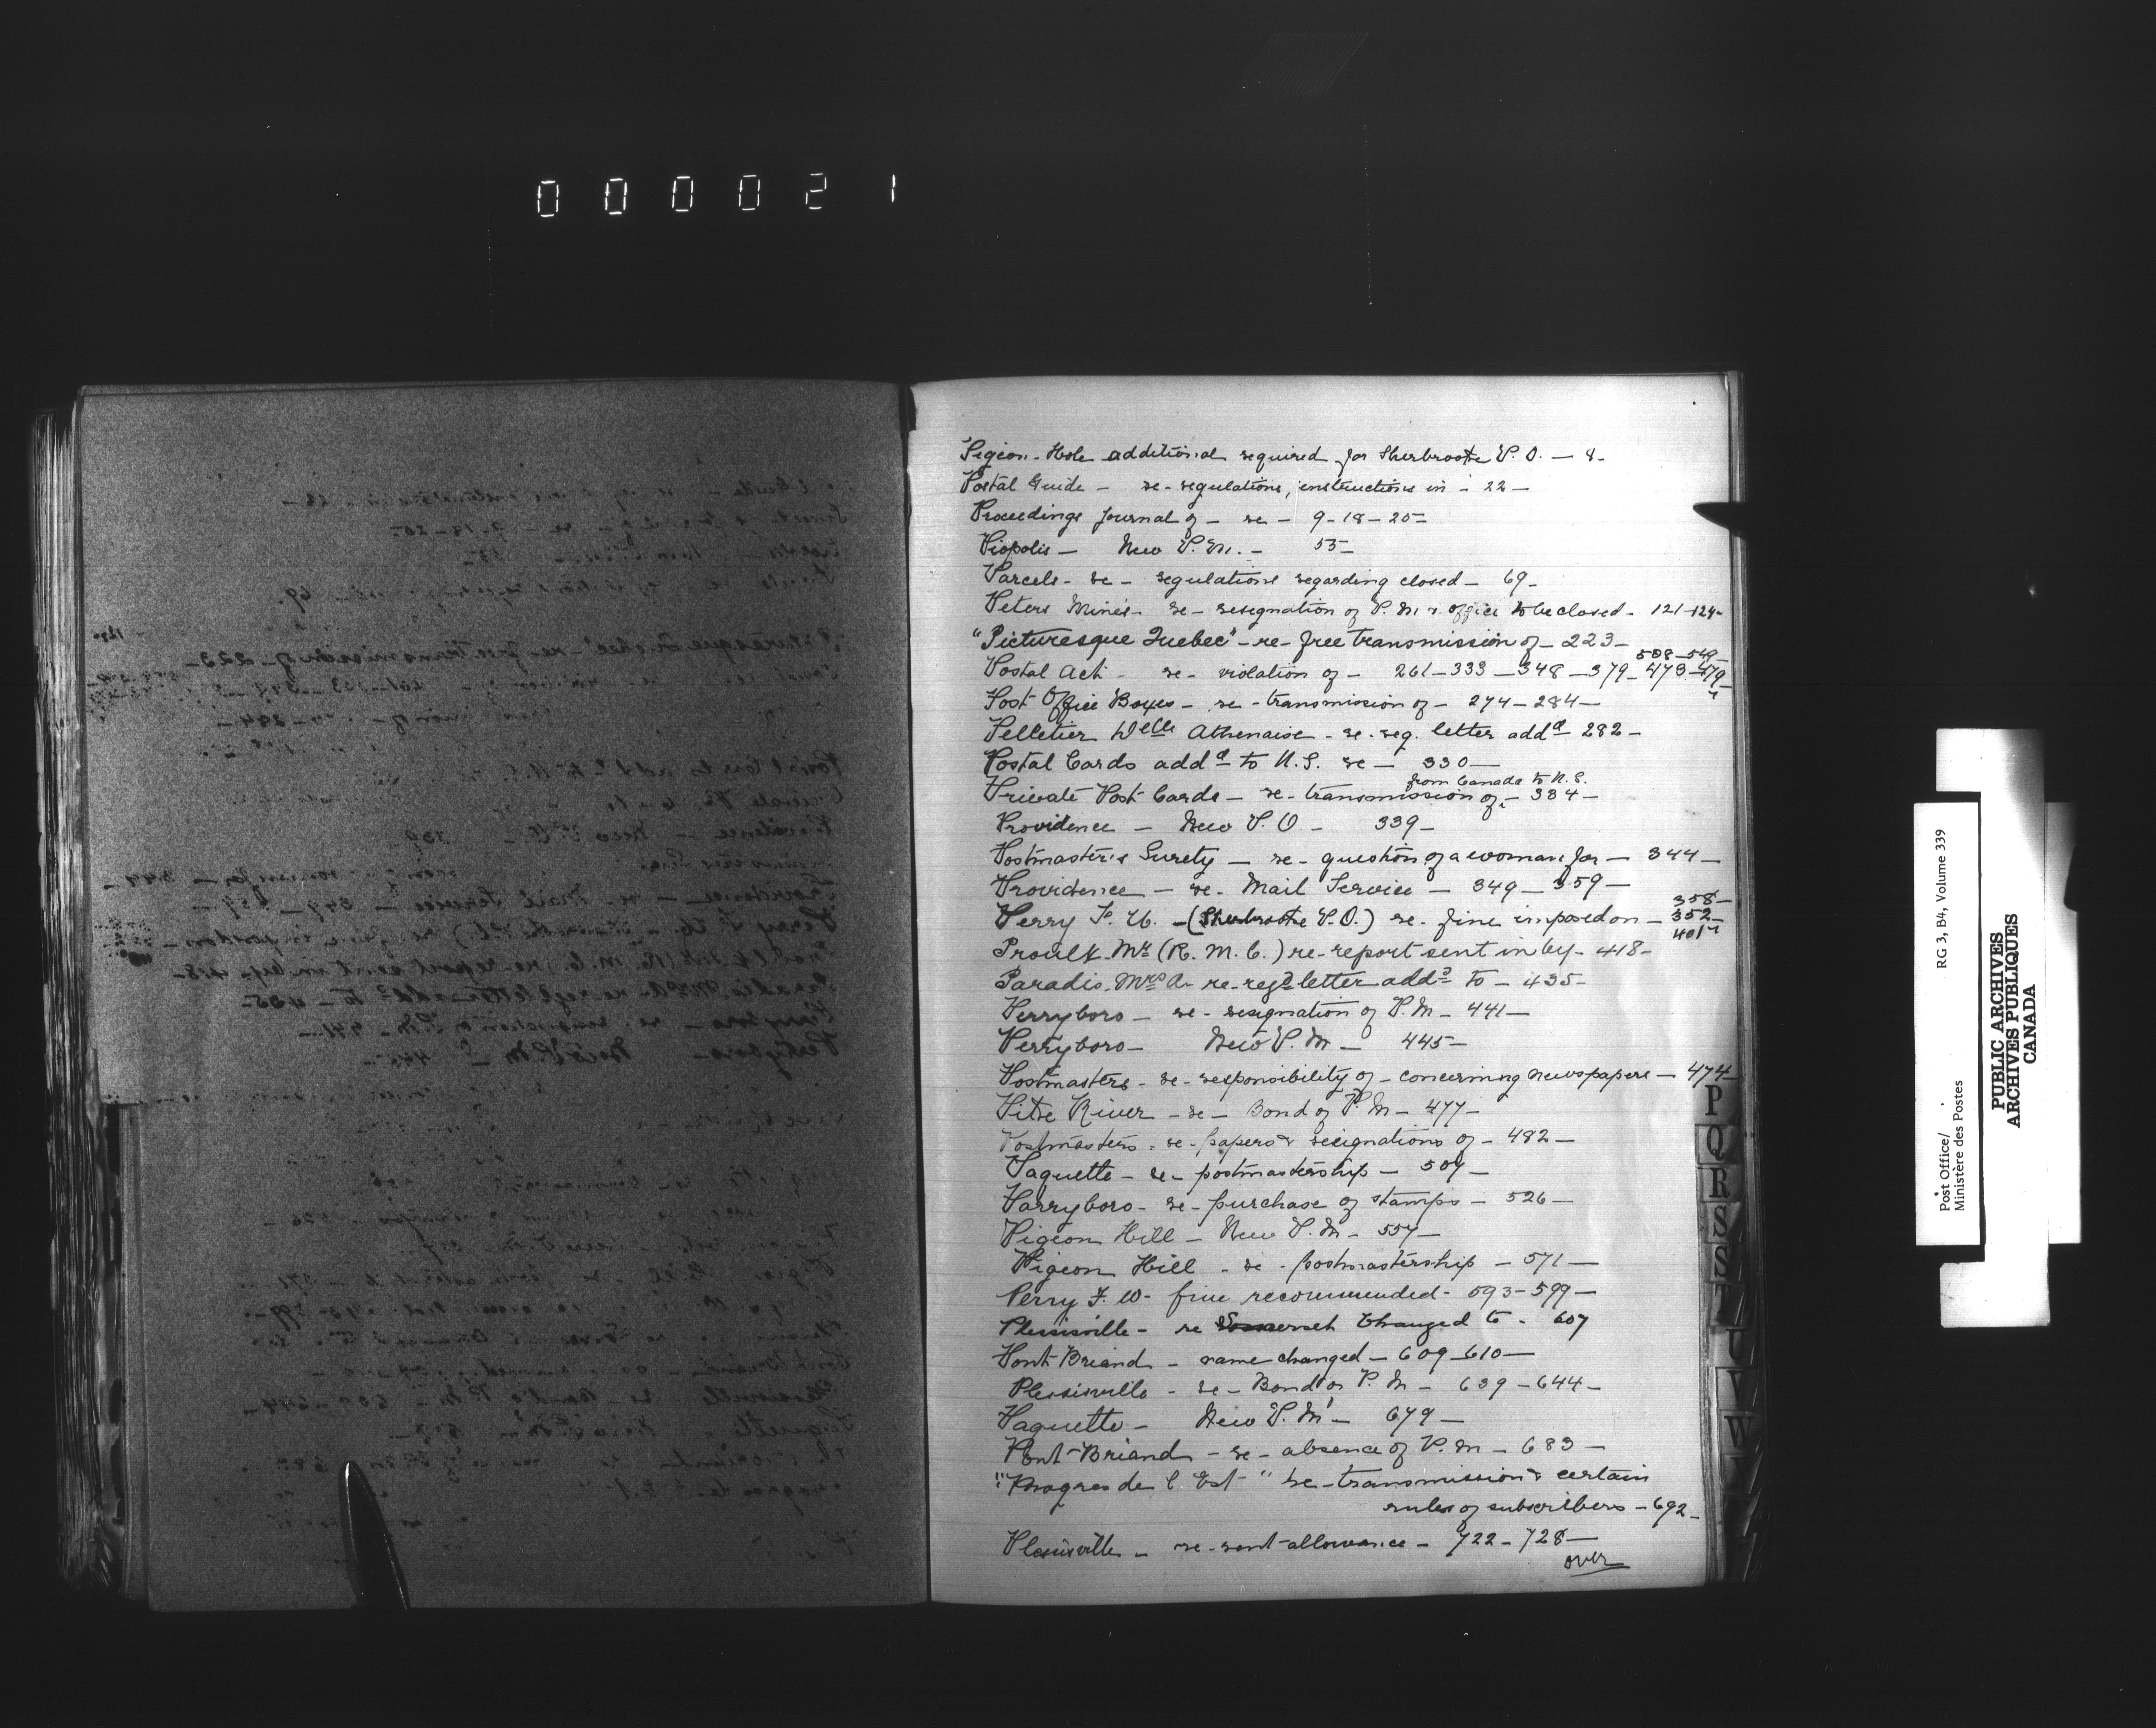 000021
Pigeon-Hole additional required for Sherbrooke P.O. — 8-
Postal Guide — re-regulations, instructions in - 22 —
Proceedings Journal of — re — 9-18-20-
Piopolis — New P.M. — 55-
Parcels - re - regulations regarding closed — 69-
Peters Mines - re - resignation of P.M & office to be closed - 121-124-
"Picturesque Quebec" - re - free transmission of - 223 -
508-549-
Postal Act - re - violation of - 261-333-348-379-473-479-
Post Office Boxes - re - transmission of - 274-284-
Pelletier Delle Athenaise - re. reg. letter addd 282 -
Postal Cards addd to U.S. re — 330 —
from Canada to U.S.
Private Post Cards — re - transmission of - 334 -
Providence — New P.O — 339-
Postmaster's Surety — re - question of a woman for — 344 —
Providence — re - Mail Service — 349-359 —
358-
Perry F. W. - (Sherbrooke P.O.) re. fine imposed on - 352-
401-
Proulx Mr (R. M. C.) re-report sent in by - 418-
Paradis Mrs A - re-regd letter addd to - 435-
Perryboro — re - resignation of P.M - 441 —
Perryboro — New P.M — 445 -
Postmasters - re - responsibility of - concerning newspapers — 474-
Pitre River - re - Bond of P.M - 477-
Postmasters - re - papers & resignations of - 482 —
Paquette - re - postmastership — 507 —
Parryboro - re - purchase of stamps - 526 —
Pigeon Hill — New P.M - 557 —
Pigeon Hill - re - postmastership - 571 —
Perry F. W - fine recommended - 593-599 —
Plessisville - re Somerset changed to - 607
Pont-Briand - name changed - 609-610 —
Plessisville - re - Bond of P.M - 639-644-
Paquette - New P.M - 679 —
Pont-Briand - re - absence of P.M - 683 —
"Progres de l'Est" re-transmission & certain
rules of subscribers - 692-
Plessisville - re-rent-allowance - 722-728-
over
P
Q
R
S
S
T
U
V
W
Post Office/
Ministère des Postes
RG 3, B4, Volume 339
PUBLIC ARCHIVES
ARCHIVES PUBLIQUES
CANADA